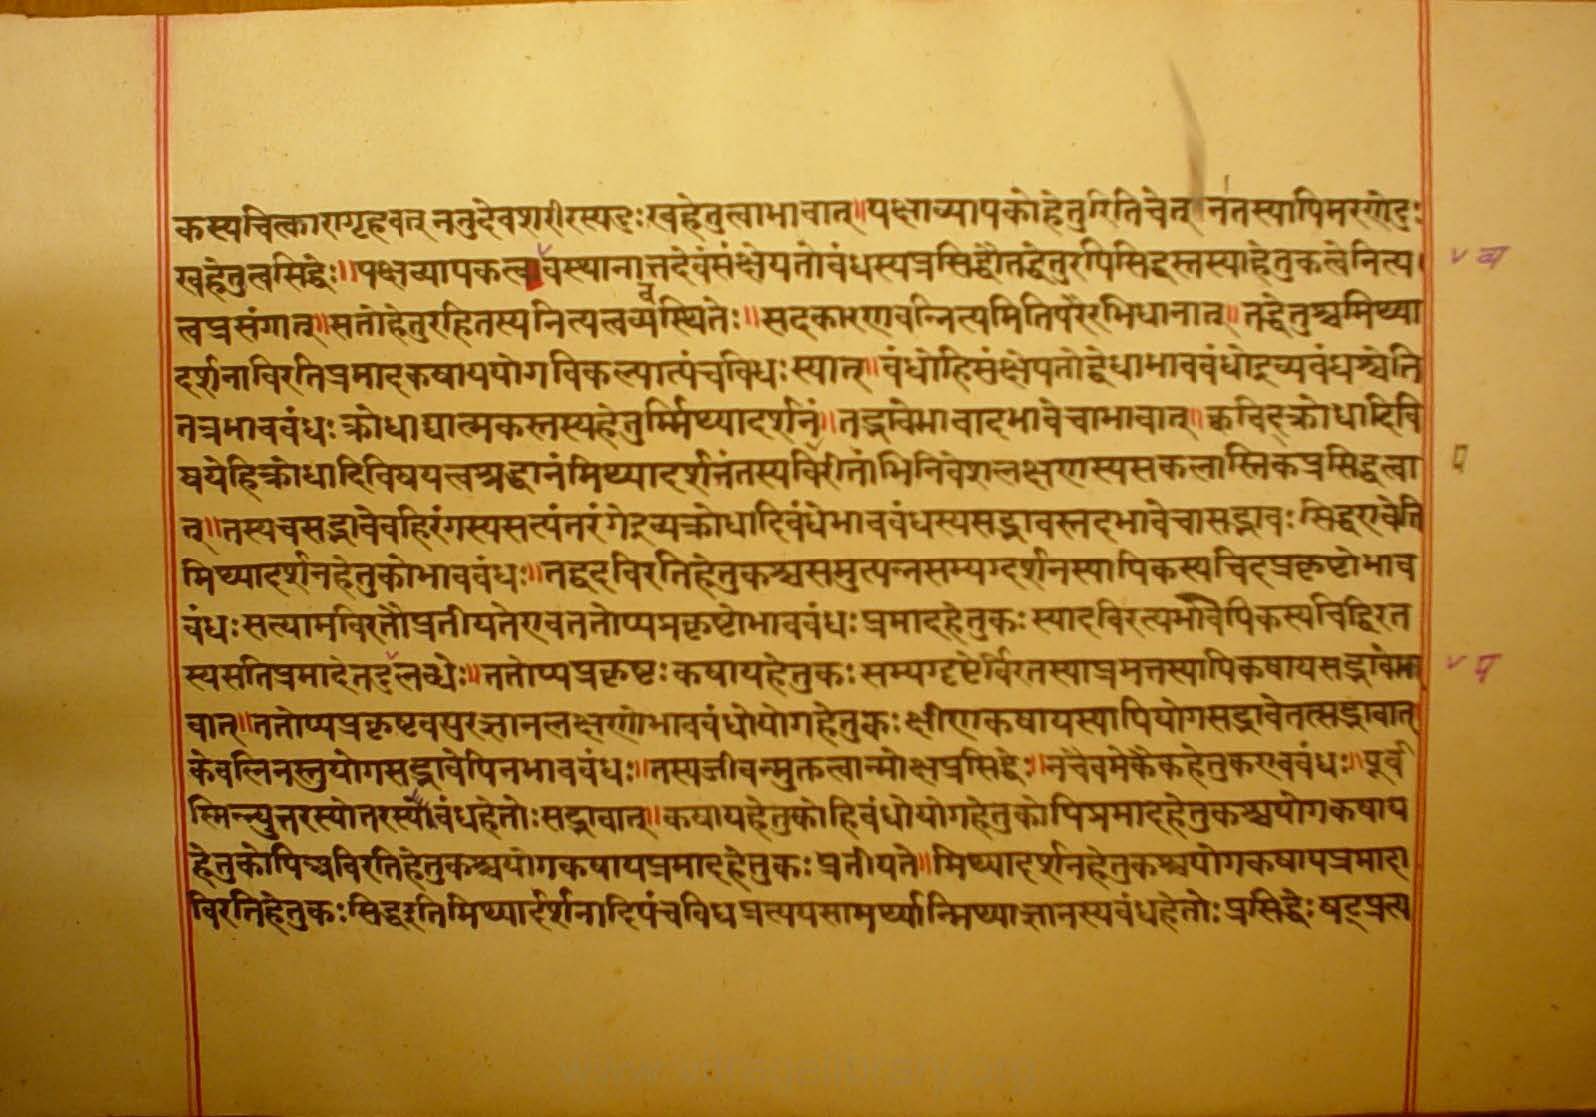 कस्यचित्कारागृहवत् ननुदेवशरीरस्यदुःखहेतुत्वाभावात्॥पक्षाव्यापकोहेतुरितिचेत् नतस्यापिमरणेदुः
खहेतुत्वसिद्धेः॥पक्षव्यापकत्व वस्थानात्तदेवंसंक्षेपतोबंधस्यप्रसिद्धौतद्धेतुरपिसिद्धस्तस्याहेतुकत्वेनित्य व्य
त्वप्रसंगात्॥सतोहेतुरहितस्यनित्यत्वव्यवस्थितेः॥सदकारणवन्नित्यमितिपरैरभिधानात्॥तद्धेतुश्चमिथ्या
दर्शनाविरतिप्रमादकषाययोगविकल्पात्पंचविधःस्यात्॥बंधोहिसंक्षेपतोद्वेधाभावबंधोद्रव्यबंधश्चेति
तत्रभावबंधःक्रोधाद्यात्मकस्तस्यहेतुर्मिथ्यादर्शनं॥तद्भावेभावादभावेचाभावात्॥क्वचिदक्रोधादिवि
षयेहिक्रोधादिविषयत्वश्रद्धानंमिथ्यादर्शनंतस्यविरीताभिनिवेशलक्षणस्यसकलास्तिकप्रसिद्धत्वा प
त्॥तस्यचसद्भावेबहिरंगस्यसत्यंतरंगेद्रव्यक्रोधादिबंधेभावबंधस्यसद्भावस्तदभावेचासद्भावःसिद्धएवेति
मिथ्यादर्शनहेतुकोभावबंधः॥तद्वदविरतिहेतुकश्चसमुत्पन्नसम्यग्दर्शनस्यापिकस्यचिदप्रकृष्टोभाव
बंधःसत्यामविरतौप्रतीयतेएवततोप्यप्रकृष्टोभावबंधःप्रमादहेतुकःस्यादविरत्यभावेपिकस्यचिद्विरत
स्यसतिप्रमादेतदुलब्धेः॥ततोप्यप्रकृष्टःकषायहेतुकःसम्यग्दृष्टेर्विरतस्याप्रमत्तस्यापिकषायसद्भावेभा प
वात्॥ततोप्यप्रकृष्टवपुरज्ञानलक्षणोभावबंधोयोगहेतुकःक्षीणकषायस्यापियोगसद्भावेतत्सद्भावात्
केवलिनस्तुयोगसद्भावेपिनभावबंधः॥तस्यजीवन्मुक्तत्वान्मोक्षप्रसिद्धेः॥नचैवमेकैकहेतुकएवबंधः॥पूर्व
स्मिन्न्युत्तरस्योत्तरस्य बंधहेतोःसद्भावात्॥कषायहेतुकोहिबंधोयोगहेतुकोपिप्रमादहेतुकश्चयोगकषाय
हेतुकोपिअविरतिहेतुकश्चयोगकषायप्रमादहेतुकःप्रतीयते॥मिथ्यादर्शनहेतुकश्चयोगकषायप्रमादा
विरतिहेतुकःसिद्धइतिमिथ्यादर्शनादिपंचविधप्रत्ययसामर्थ्यान्मिथ्याज्ञानस्यबंधहेतोःप्रसिद्धेःषट्प्रत्य